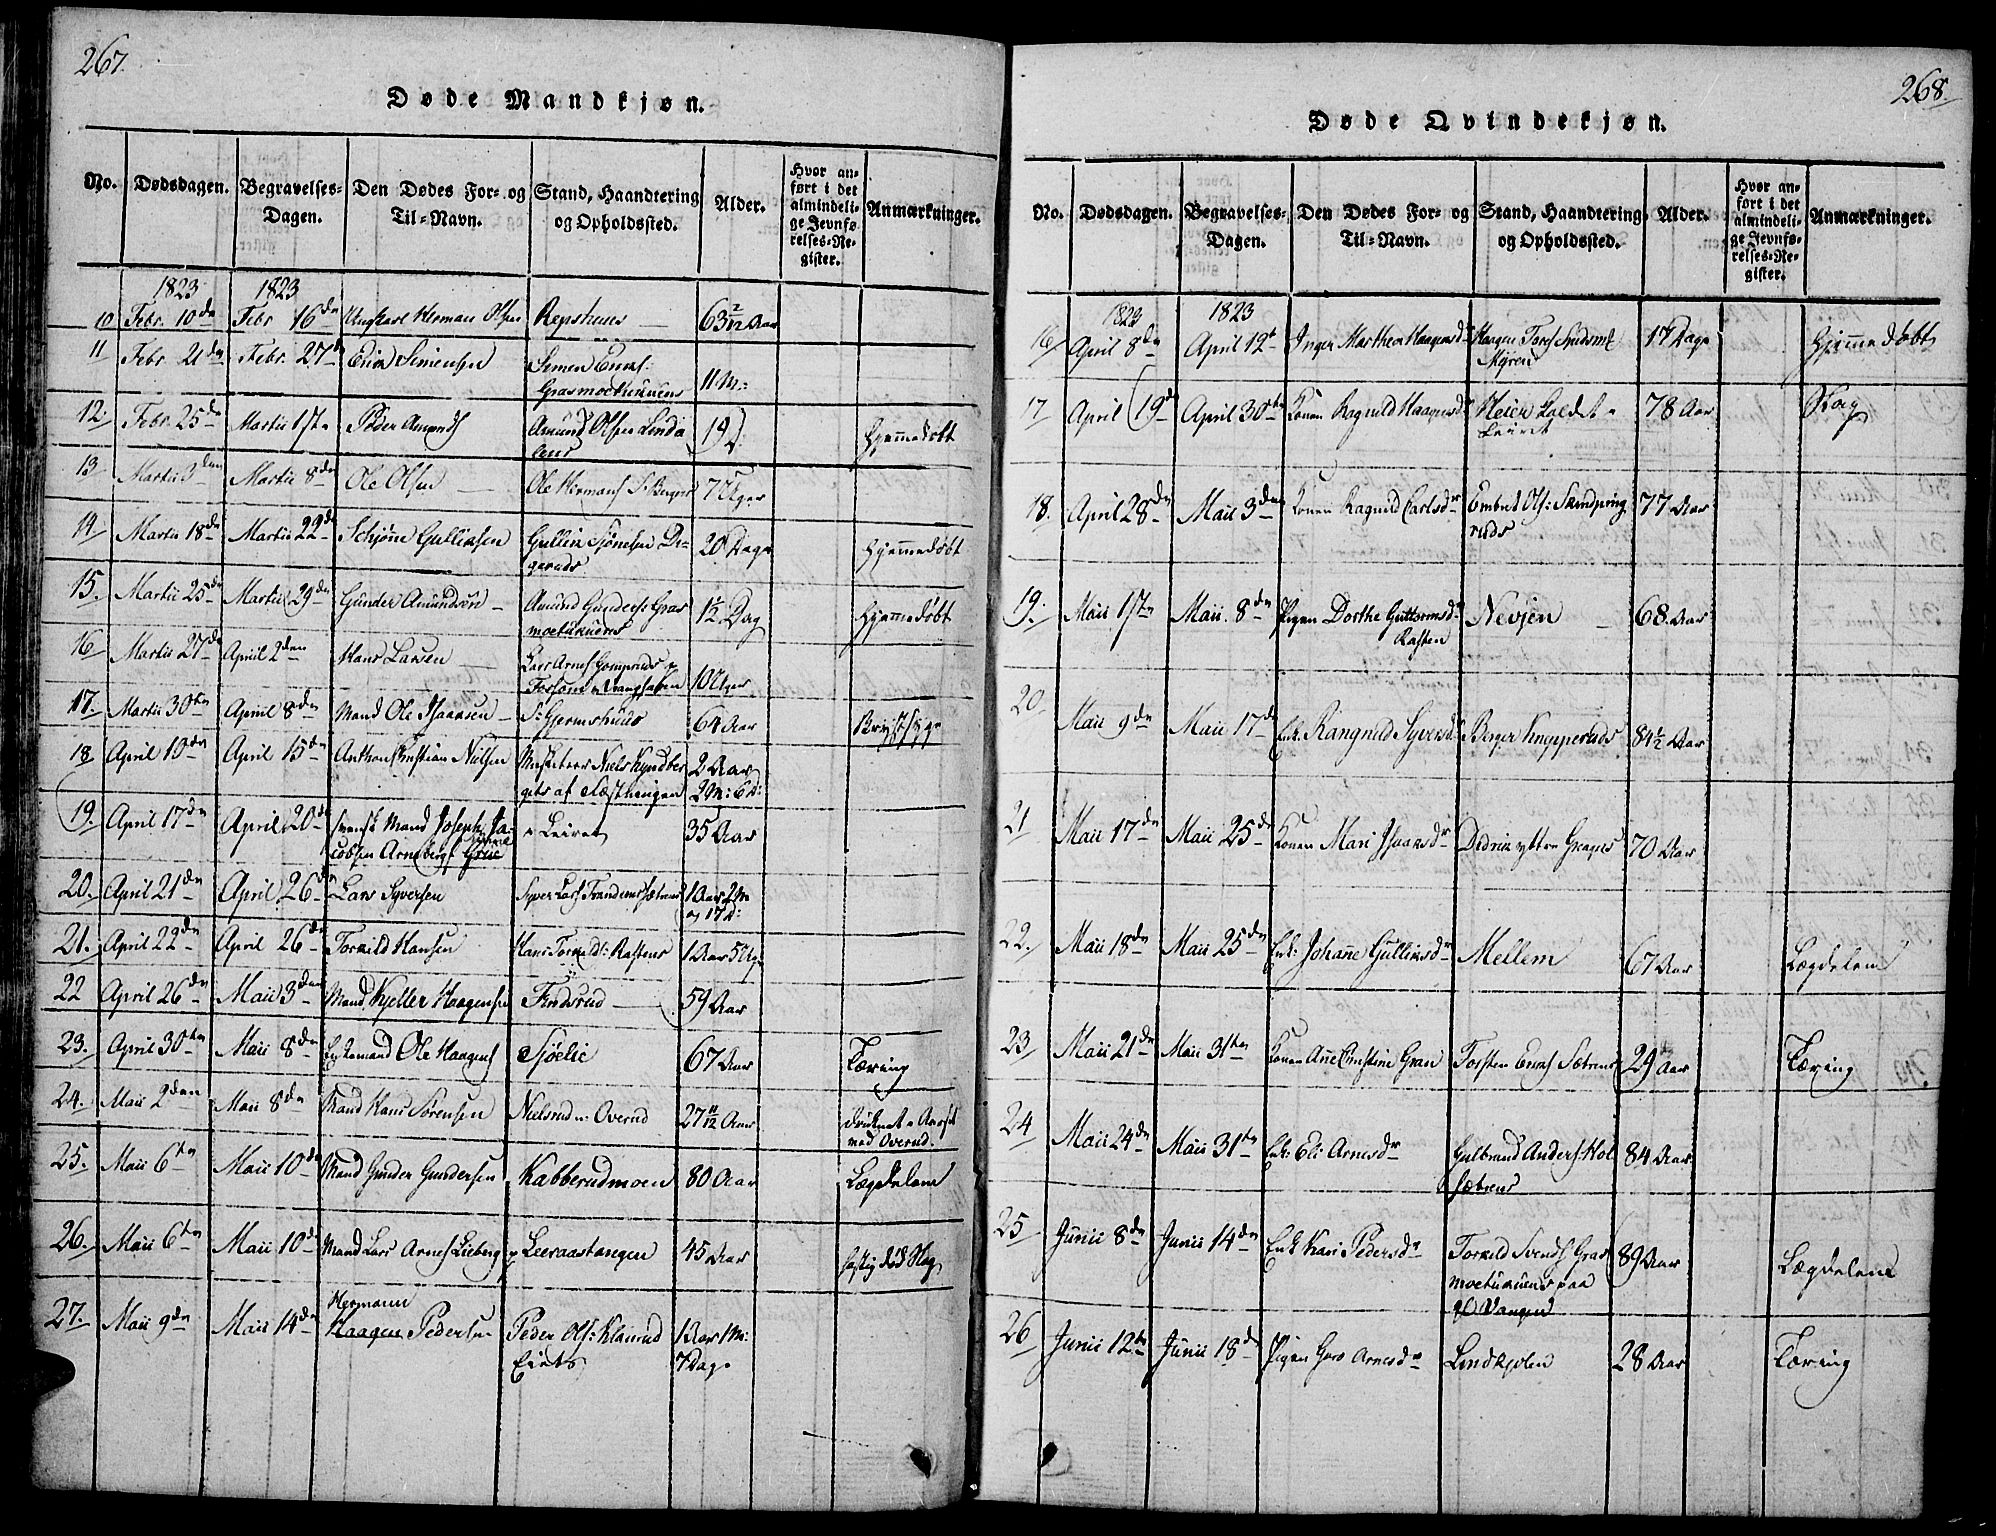 267.
Døde Mandkjøn.
No. Dødsdagen. Begravelses-Dagen. Den Dødes For- og Til-Navn. Stand, Haandtering og Opholdssted. Alder. Hvor anført i det almindelige Jevnførelses-Register. Anmærkninger.
1823 1823
10 Febr. 10de Febr 16de Ungkarl Herman Olsen 63 2/12 Aar
11 Febr. 21de Febr. 27de Simensen Simen 11 M:
12. Febr. 25de Martii 1ste Peder Amunds Amund Olsen 19 D. Hjemmedøbt
13 Martii 3den Martii 8de Ole Olsen Ole Hermans S. Berger 7 Uger
14 Martii 18de Martii 22de Schjøn Gulliksen 20 Dage Hjemmedøbt
15. Martii 25de Martii 29de Gunder Amundsøn Amund Gunders. 1½ Dag Hjemmedøbt
16 Martii 27de April 2den Hans Larsen Lars Arnes 10 Uger
17. Martii 30te April 8de Mand Ole Isaacsen 64 Aar Brystsyge
18 April 10de April 15de Anthon Christian Nielsen Musketeer Niels af 2 Aar 2 M: 6 D:
19. April 17de April 20de svensk Mand Joseph Jacobsen Arneberg Grue Leiret 35 Aar
20. April 21de April 26de Lars Syversen Syver Lars 1 Aar 2 M og 17 D:
21. April 22de April 26de Torkild Hansen Hans Torkild: Rastens 1 Aar 5 Uger
22 April 26de Maii 3den Mand Kjeller Haagensen Findsrud 59 Aar
23. April 30te Maii 8de Ole Haagens Sjølie 67 Aar Tæring
24. Maii 2den Maii 8de Mand Hans Sørensen Nielsrud Overud 27 11/12 Aar med Overud.
25. Maii 6te Maii 10de Mand Gunder Gundersen Kabberudmoen 80 Aar Lægdelem
26. Maii 6te Maii 10de Mand Lars Arnes Lieberg Leeraastangen 45 Aar
27. Maii 9de Maii 14de Hermann
Haagen Pedersen Peder Ols: Klanrud Eiets 1 Aar 1 M: 7 Dage
268.
Døde Qvindekjøn.
No. Dødsdagen. Begravelses-Dagen. Den Dødes For- og Til-Navn. Stand, Haandtering og Opholdssted. Alder. Hvor anført i det almindelige Jevnførelses-Register. Anmærkninger.
1823 1823
16 April 8de April 12te Inger Marthea Haagensdr Haagen Myren 17 Dage Hjemmedøbt
17 April 19de April 30te Konen Ragnild Haagensdr Leiret 78 Aar
18. April 28de Maii 3den Konen Ragnild Carlsdr Embret Ols: 77 Aar
19. Maii 1ste Maii 8de Pigen Dorthe Guttormsdr Rasten Nevjen 68 Aar
20 Maii 9de Maii 17de Enk. Rangnild Syversdr Berger Knapperuds 84½ Aar
21 Maii 17de Maii 25de Konen Mari Isaacsdr Didrik ytre 70 Aar
22. Maii 18de Maii 25de Enk: Johanne Gulliksdr Mellem 67 Aar Lægdelem
23 Maii 21de Maii 31te Konen Anne Christine Gran Torsten Sætrens 29 Aar Tæring
24 Maii 24de Maii 31te Enk: Eli Arnesdr Gulbrand Anders: Holsætrens 84 Aar
25 Junii 8de Junii 14de Enk Kari Pedersdr Torkild Svends paa Vangen 89 Aar Lægdelem
26 Junii 12te Junii 18de Pigen Arnesdr Lindkjølen 28 Aar Tæring